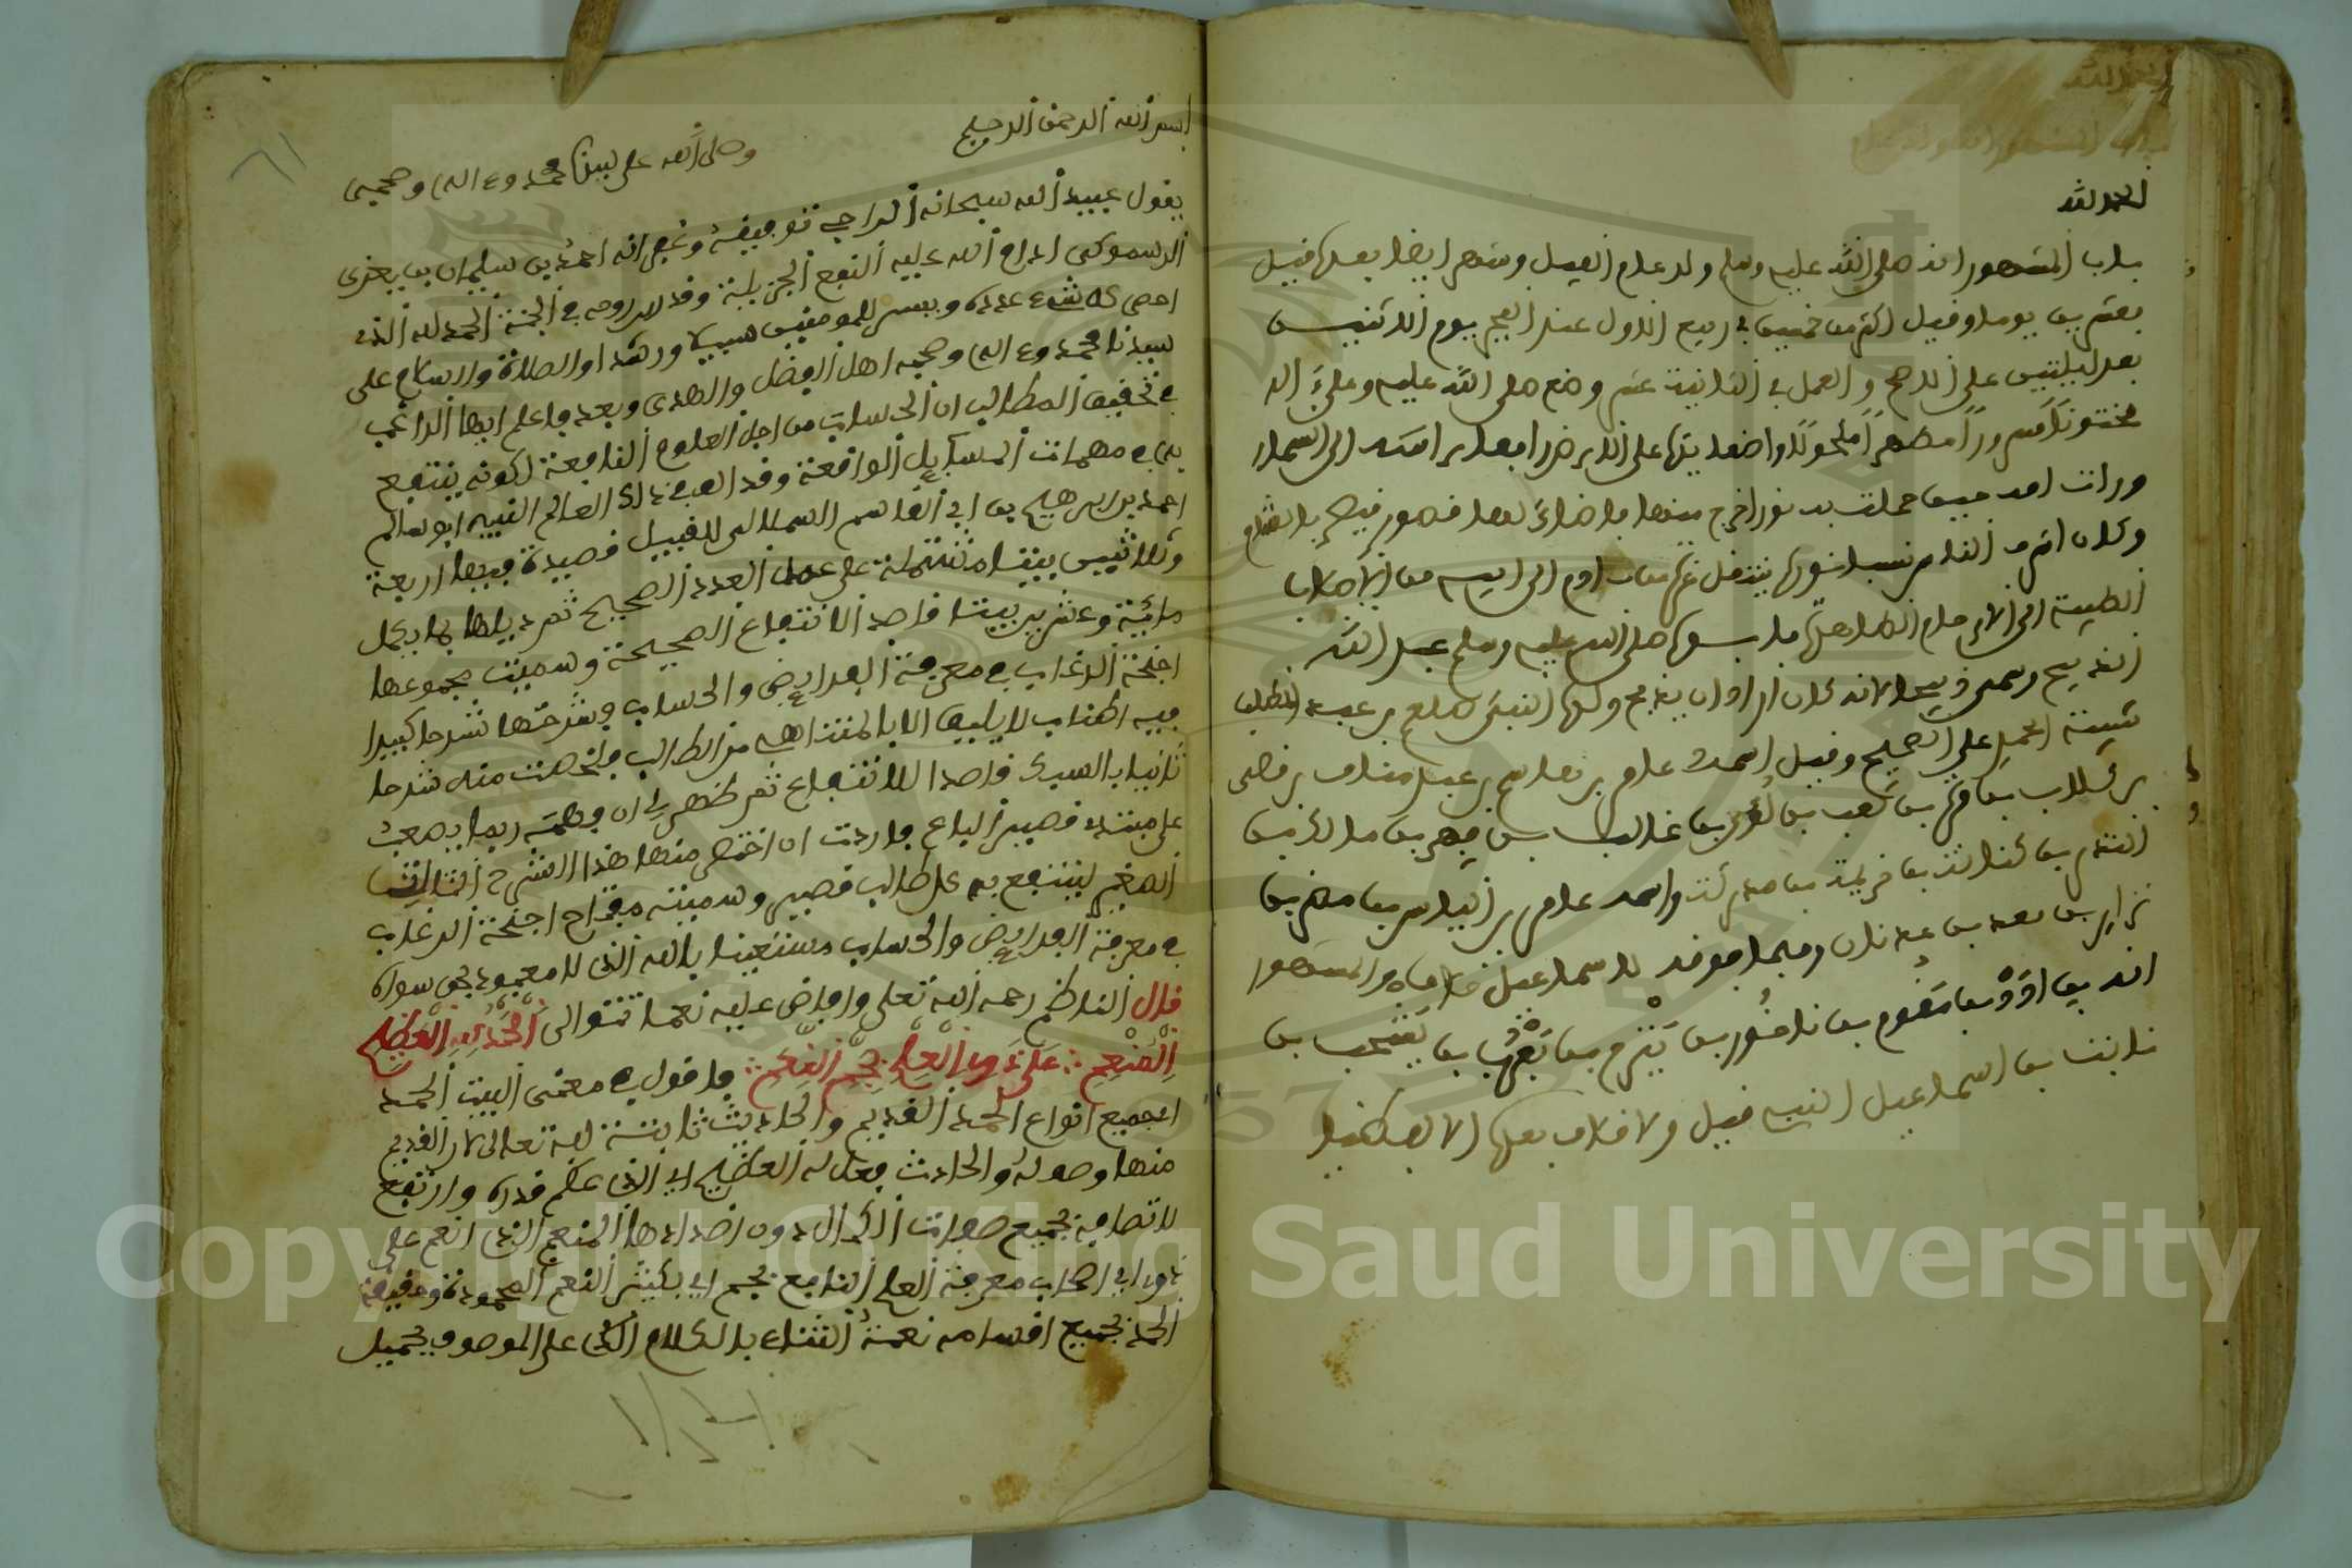 الحمد لله
باب المشهور انه صلى الله عليه وسلم ولد عام الفيل وشهر ايضا بعدها قيل
بعشرين يوما وقيل اكثر من خمسين في ربيع الاول عند الفجر يوم الاثنين
بعد ليلتين على الاصح والعمل في الثانية عشر وضع صلى الله عليه وعلى اله
مختونا مسرورا مطهرا مكحولا واضعا يديها على الارض رافعا راسه الى السماء
ورات امه حين حملت به نورا خرج منها فاضاءت لها قصور بالشام
وكان اشرف الناس نسبا
الطيبة الى الارحام الطاهرة فابوه صلى الله عليه وسلم عبد الله
الذبيح وسمي ذبيحا لانه كان اراد ان يذبح وكان بن عبد المطلب
شيبة الحمد على الصحيح وقيل اسمه عامر بن هاشم بن عبد مناف بن قصي
بن كلاب بن مرة بن كعب بن لؤي بن غالب بن فهر بن مالك بن
النضر بن كنانة بن خزيمة بن مدركة واسمه عامر بن الياس بن مضر بن
نزار بن معد بن عدنان وفيما فوقه لاسماعيل خلاف والمشهور
انه بن ادد بن مقوم بن ناحور بن تيرح بن يعرب بن يشجب بن
نابت بن اسماعيل النبي قيل ولا خلاف بعدها
بسم الله الرحمن الرحيم
وصلى الله على نبينا محمد وءاله وصحبه
يقول عبيد الله سبحانه الراجي توفيقه وغفرانه احمد بن سليمان بن يعزى
الرسموكي ادام الله عليه النفع الجزيلة وقدس روحه في الجنة الحمد لله الذي
احصى كل شيء عدده ويسر للمومنين سبيلا ورشدا والصلاة والسلام على
سيدنا محمد وءاله وصحبه اهل الفضل والهدى وبعد فاعلم ايها الراغب
في تحقيق المطالب ان الحساب من اجل العلوم النافعة لكونه ينتفع
به في مهمات المسايل الواقعة وقد الف في ذلك العالم النبيه ابو سالم
ابراهيم بن ابي القاسم السملالي قصيدة فيها اربعة
وثلاثين بيتا مشتملة على عمل العدد الصحيح ثم ذيلها بما يكمل
مائية وعشرين بيتا قاصدا الانتفاع الصحيحة وسميت مجموعها
اجنحة الرغاب في معرفة الفرايض والحساب وشرحتها شرحا كبيرا
فيه اطناب لا يليق الا بالمتناهي من الطالب فلخصت منه شرحا
ثانيا بالسيد قاصدا للانتفاع ثم ظهر لي ان فهمه ربما يصعب
على مبتدء قصير الباع فاردت ان اختصر منهما هذا الشرح الثالث
الصغير لينتفع به كل طالب قصير وسميته مفتاح اجنحة الرغاب
في معرفة الفرايض والحساب مستعينا بالله الذي لا معبود بحق سواه
قال الناظم رحمه الله تعلى وافاض عليه نعما تتوالى الحمد لله العظيم
المنعم على ذوي العلم بجم النعم فاقول في معنى البيت الحمد
اي جميع انواع الحمد القديم والحادث ثابتة لله تعالى لان القديم
منها وصفه والحادث فعل له العظيم اي الذي عظم قدره وارتفع
لاتصافه بجميع صفات الكمال دون اضدادها المنعم الذي انعم على
ذوي اي اصحاب معرفة العلم النافع بجم اي بكثير النعم المحمودة وحقيقة
الحمد بجميع اقسامه نعمة الثناء بالكلام الذي على الموصوف بجميل
Copyright © King Saud University
1957